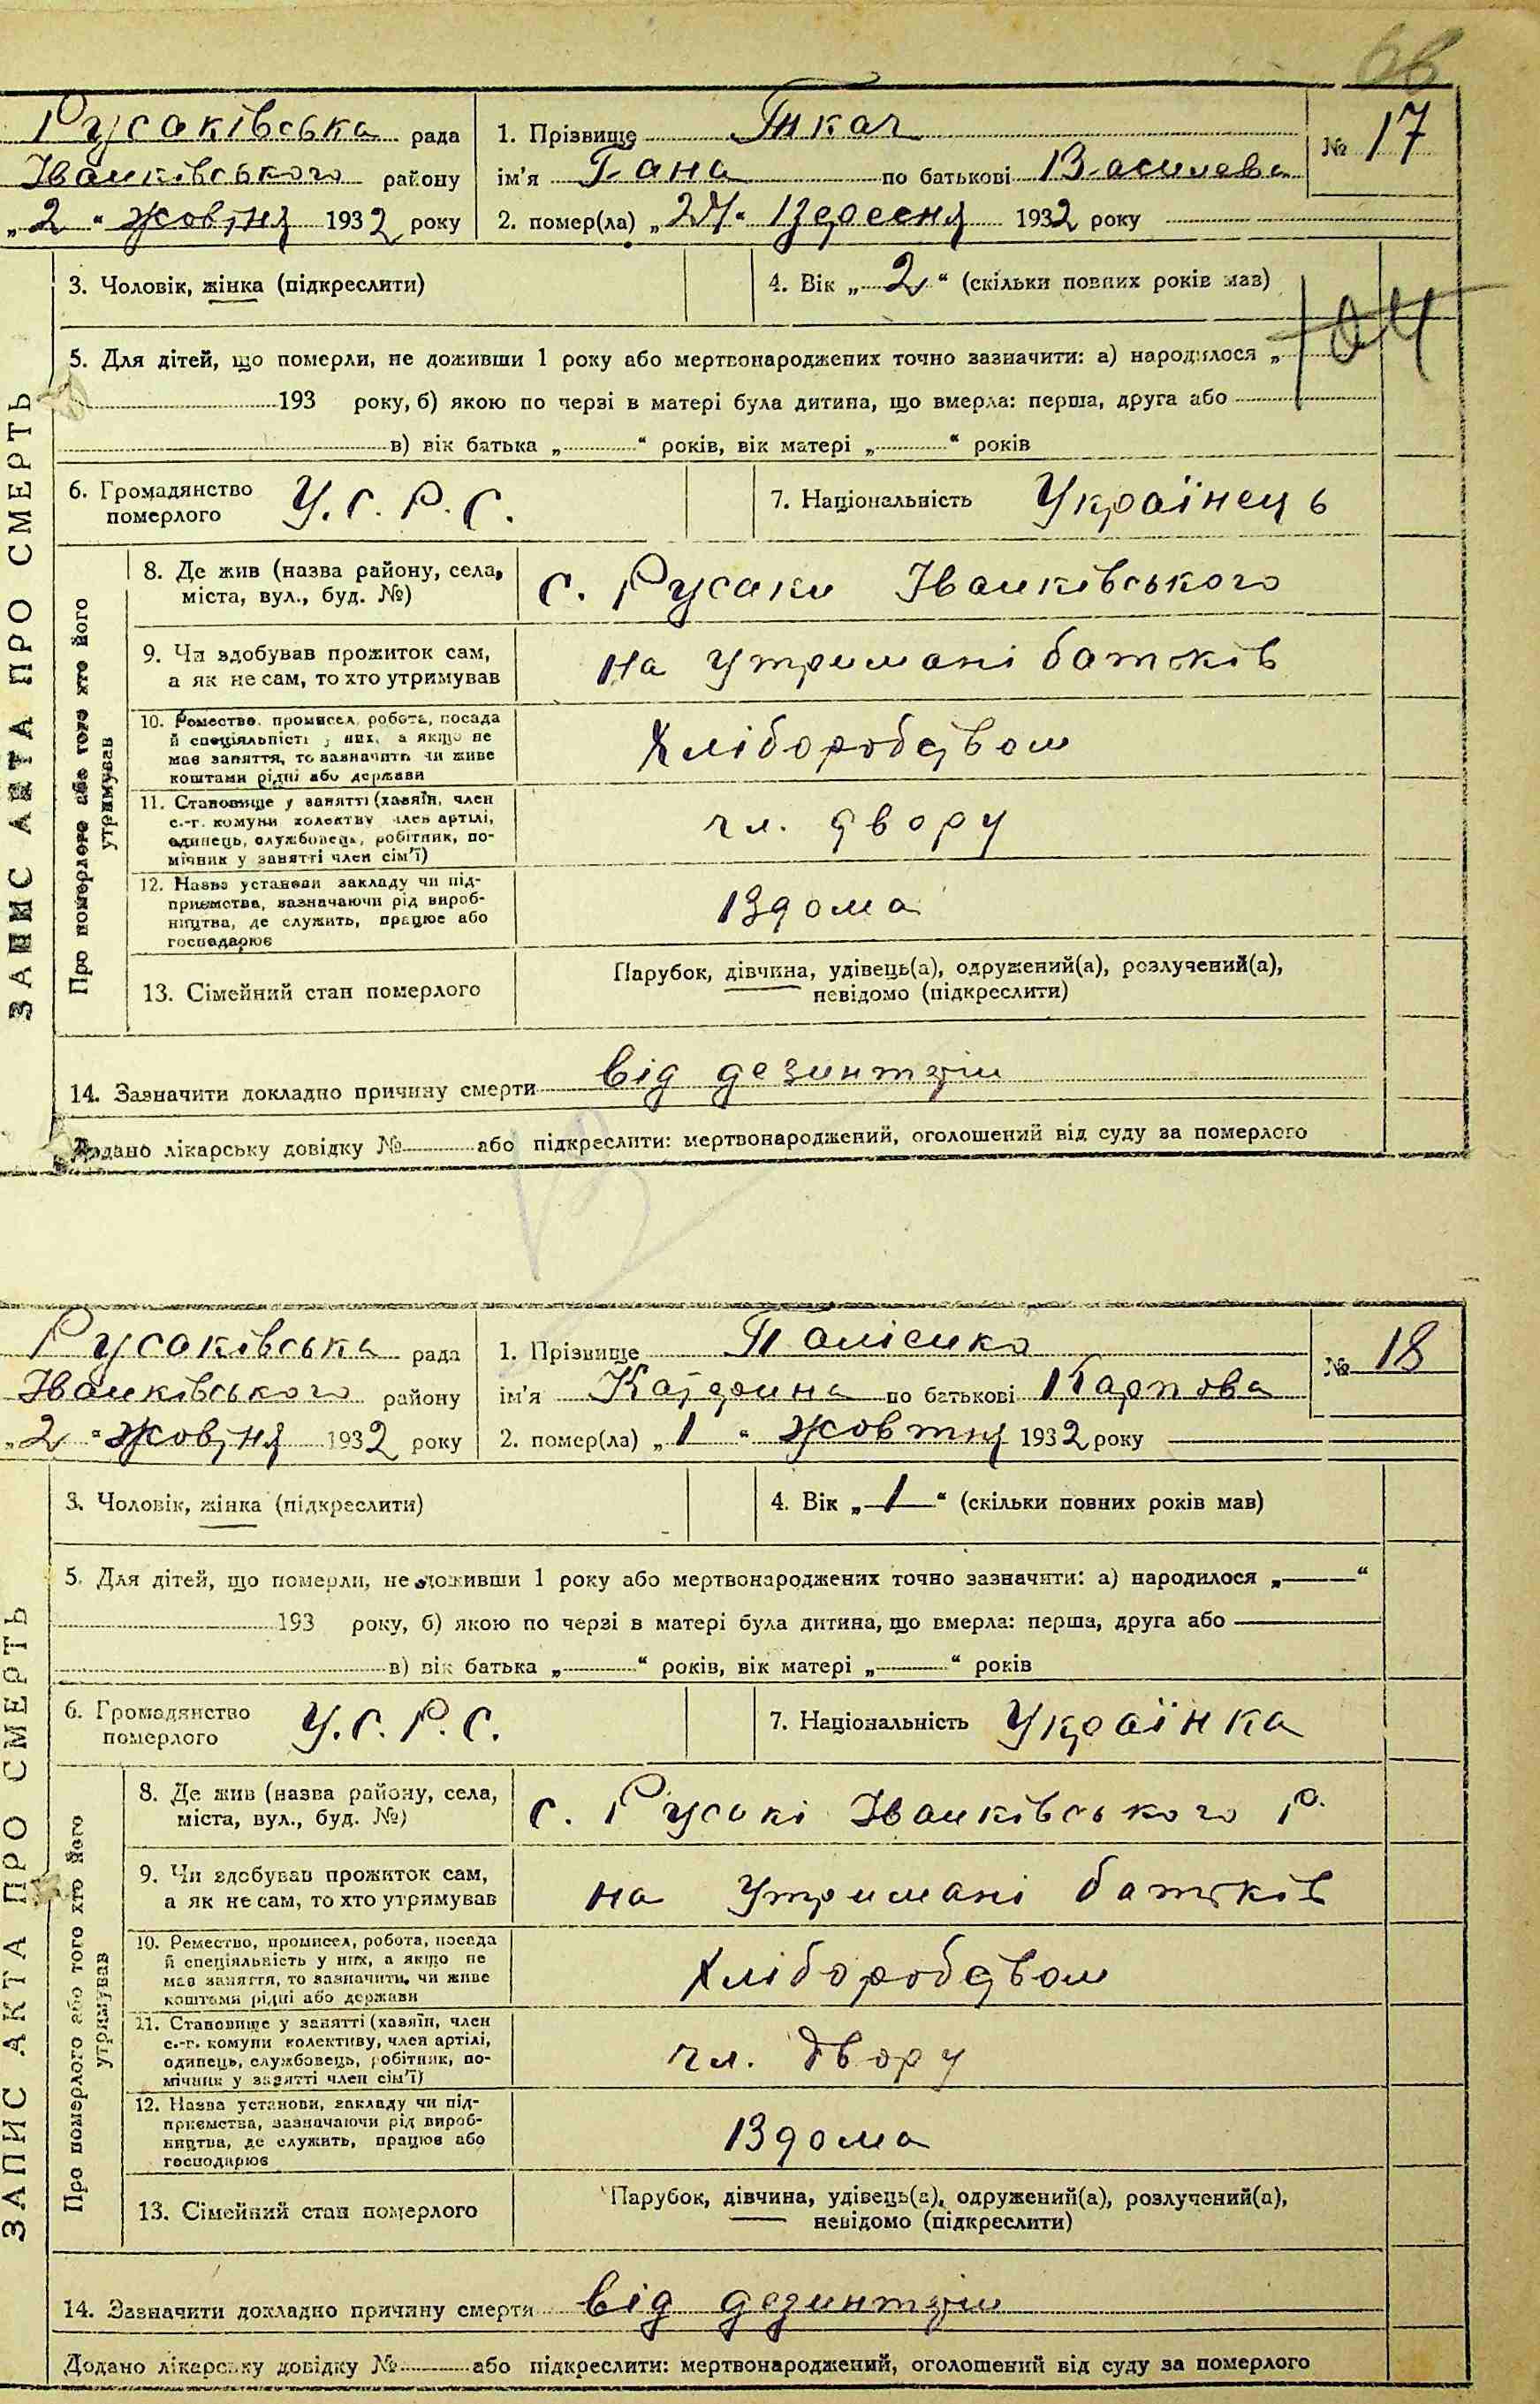 66
Русаківська рада
Іванківського району
„2“ жовтня 1932 року
1. Прізвище Ткач
№ 17
ім'я Гана по батькові Василева
2. помер(ла) „27“ Вересня 1932 року
3. Чоловік, жінка (підкреслити)
4. Вік „2“ (скільки повних років мав)
5. Для дітей, що померли, не доживши 1 року або мертвонароджених точно зазначити: а) народилося „
193 року, б) якою по черзі в матері була дитина, що вмерла: перша, друга або
в) вік батька „ “ років, вік матері „ “ років
6. Громадянство
померлого
У.С.Р.С.
7. Національність Українець
ЗАПИС АКТА ПРО СМЕРТЬ
Про померлого або того хто його
утримував
8. Де жив (назва району, села,
міста, вул., буд. №)
с. Русаки Іванківського
9. Чи здобував прожиток сам,
а як не сам, то хто утримував
на утримані батьків
10. Ремество, промисел, робота, посада
й спеціяльність у них, а якщо не
має заняття, то зазначити чи живе
коштами рідні або держави
Хліборобством
11. Становище у занятті (хазяїн, член
с.-г. комуни колективу член артілі,
одинець, службовець, робітник, по-
мічник у занятті член сім'ї)
чл. двору
12. Назва установи закладу чи під-
приємства, зазначаючи рід вироб-
ництва, де служить, працює або
господарює
Вдома
13. Сімейний стан померлого
Парубок, дівчина, удівець(а), одружений(а), розлучений(а),
невідомо (підкреслити)
14. Зазначити докладно причину смерти від дезинтэрии
Додано лікарську довідку № або підкреслити: мертвонароджений, оголошений від суду за померлого
Русаківська рада
Іванківського району
„2“ жовтня 1932 року
1. Прізвище Палієнко
№ 18
ім'я Катерина по батькові Карпова
2. помер(ла) „1“ жовтня 1932 року
3. Чоловік, жінка (підкреслити)
4. Вік „1“ (скільки повних років мав)
5. Для дітей, що померли, не доживши 1 року або мертвонароджених точно зазначити: а) народилося „ “
193 року, б) якою по черзі в матері була дитина, що вмерла: перша, друга або
в) вік батька „ “ років, вік матері „ “ років
6. Громадянство
померлого
У.С.Р.С.
7. Національність Українка
ЗАПИС АКТА ПРО СМЕРТЬ
Про померлого або того хто його
утримував
8. Де жив (назва району, села,
міста, вул., буд. №)
с. Русакі Іванківського р.
9. Чи здобував прожиток сам,
а як не сам, то хто утримував
на утримані батьків
10. Ремество, промисел, робота, посада
й спеціяльність у них, а якщо не
має заняття, то зазначити, чи живе
коштами рідні або держави
Хліборобством
11. Становище у занятті (хазяїн, член
с.-г. комуни колективу, член артілі,
одинець, службовець, робітник, по-
мічник у занятті член сім'ї)
чл. двору
12. Назва установи, закладу чи під-
приємства, зазначаючи рід вироб-
ництва, де служить, працює або
господарює
Вдома
13. Сімейний стан померлого
Парубок, дівчина, удівець(а), одружений(а), розлучений(а),
невідомо (підкреслити)
14. Зазначити докладно причину смерти від дезинтэрии
Додано лікарську довідку № або підкреслити: мертвонароджений, оголошений від суду за померлого